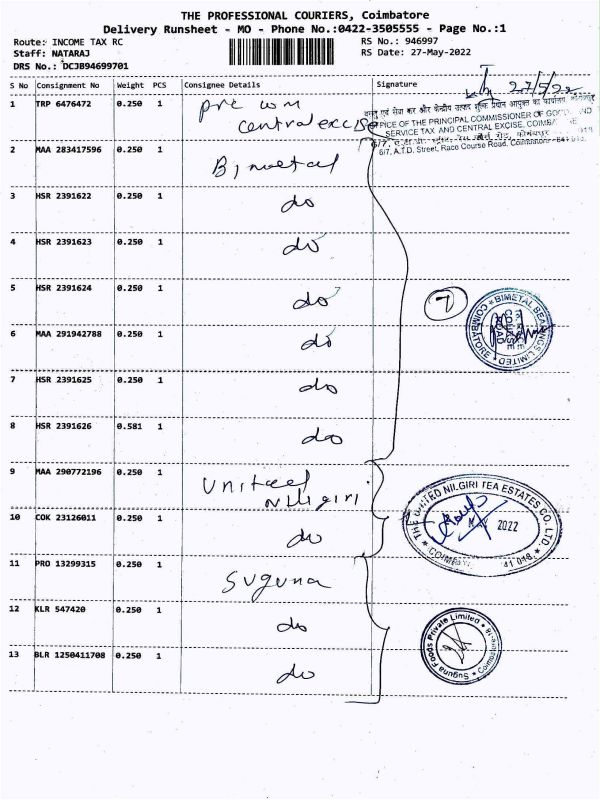 THE PROFESSIONAL COURIERS, Coimbatore
Delivery Runsheet - MO - Phone No.:0422-3505555 - Page No.:1
Route: INCOME TAX RC
RS No.: 946997
Staff: NATARAJ
RS Date: 27-May-2022
DRS No.: DCJB94699701
27/5/22
S No Consignment No Weight PCS Consignee Details Signature
1 TRP 6476472 0.250 1
central excise
OFFICE OF THE PRINCIPAL COMMISSIONER OF GOODS AND
SERVICE TAX AND CENTRAL EXCISE, COIMBA
6/7, A.T.D. Street, Race Course Road, Coimbatore - 641 018.
2 MAA 283417596 0.250 1 Bimetal
3 HSR 2391622 0.250 1 do
4 HSR 2391623 0.250 1 do
5 HSR 2391624 0.250 1 do
7
BIMETAL BEARINGS LIMITED
COIMBATORE
6 MAA 291942788 0.250 1 do
7 HSR 2391625 0.250 1 do
8 HSR 2391626 0.581 1 do
9 MAA 290772196 0.250 1 United
Nilgiri
THE UNITED NILGIRI TEA ESTATES CO. LTD.
2022
10 COK 23126011 0.250 1 do
11 PRO 13299315 0.250 1 Suguna
12 KLR 547420 0.250 1 do
Suguna Foods Private Limited
13 BLR 1250411708 0.250 1 do